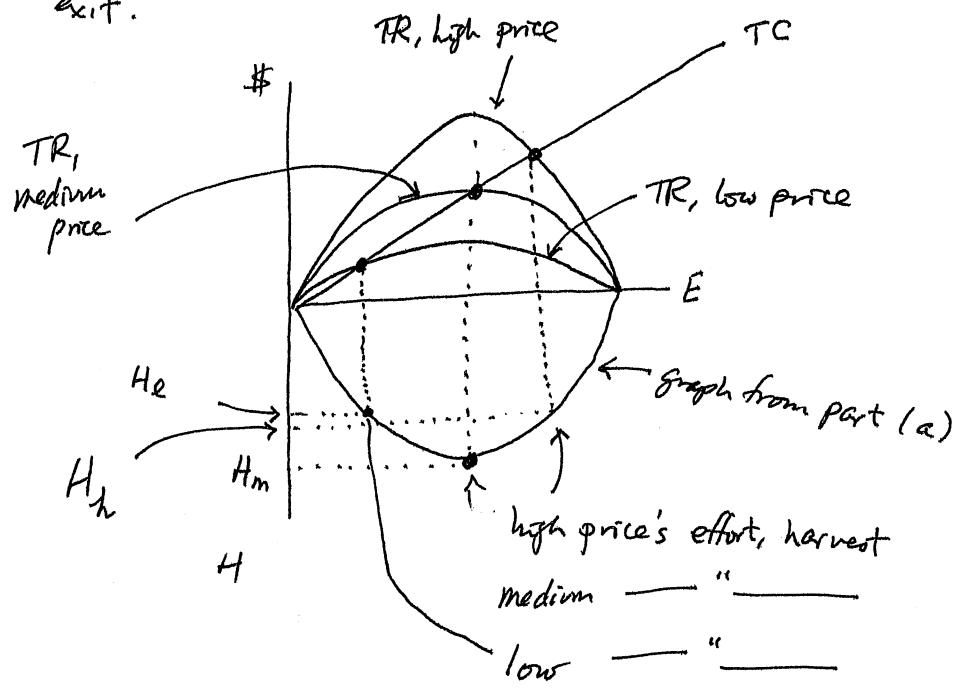 exit.
TR, high price
TC
$
TR,
medium
price
TR, low price
E
He
graph from part (a)
Hh
Hm
high price's effort, harvest
H
medium — " —
low — " —